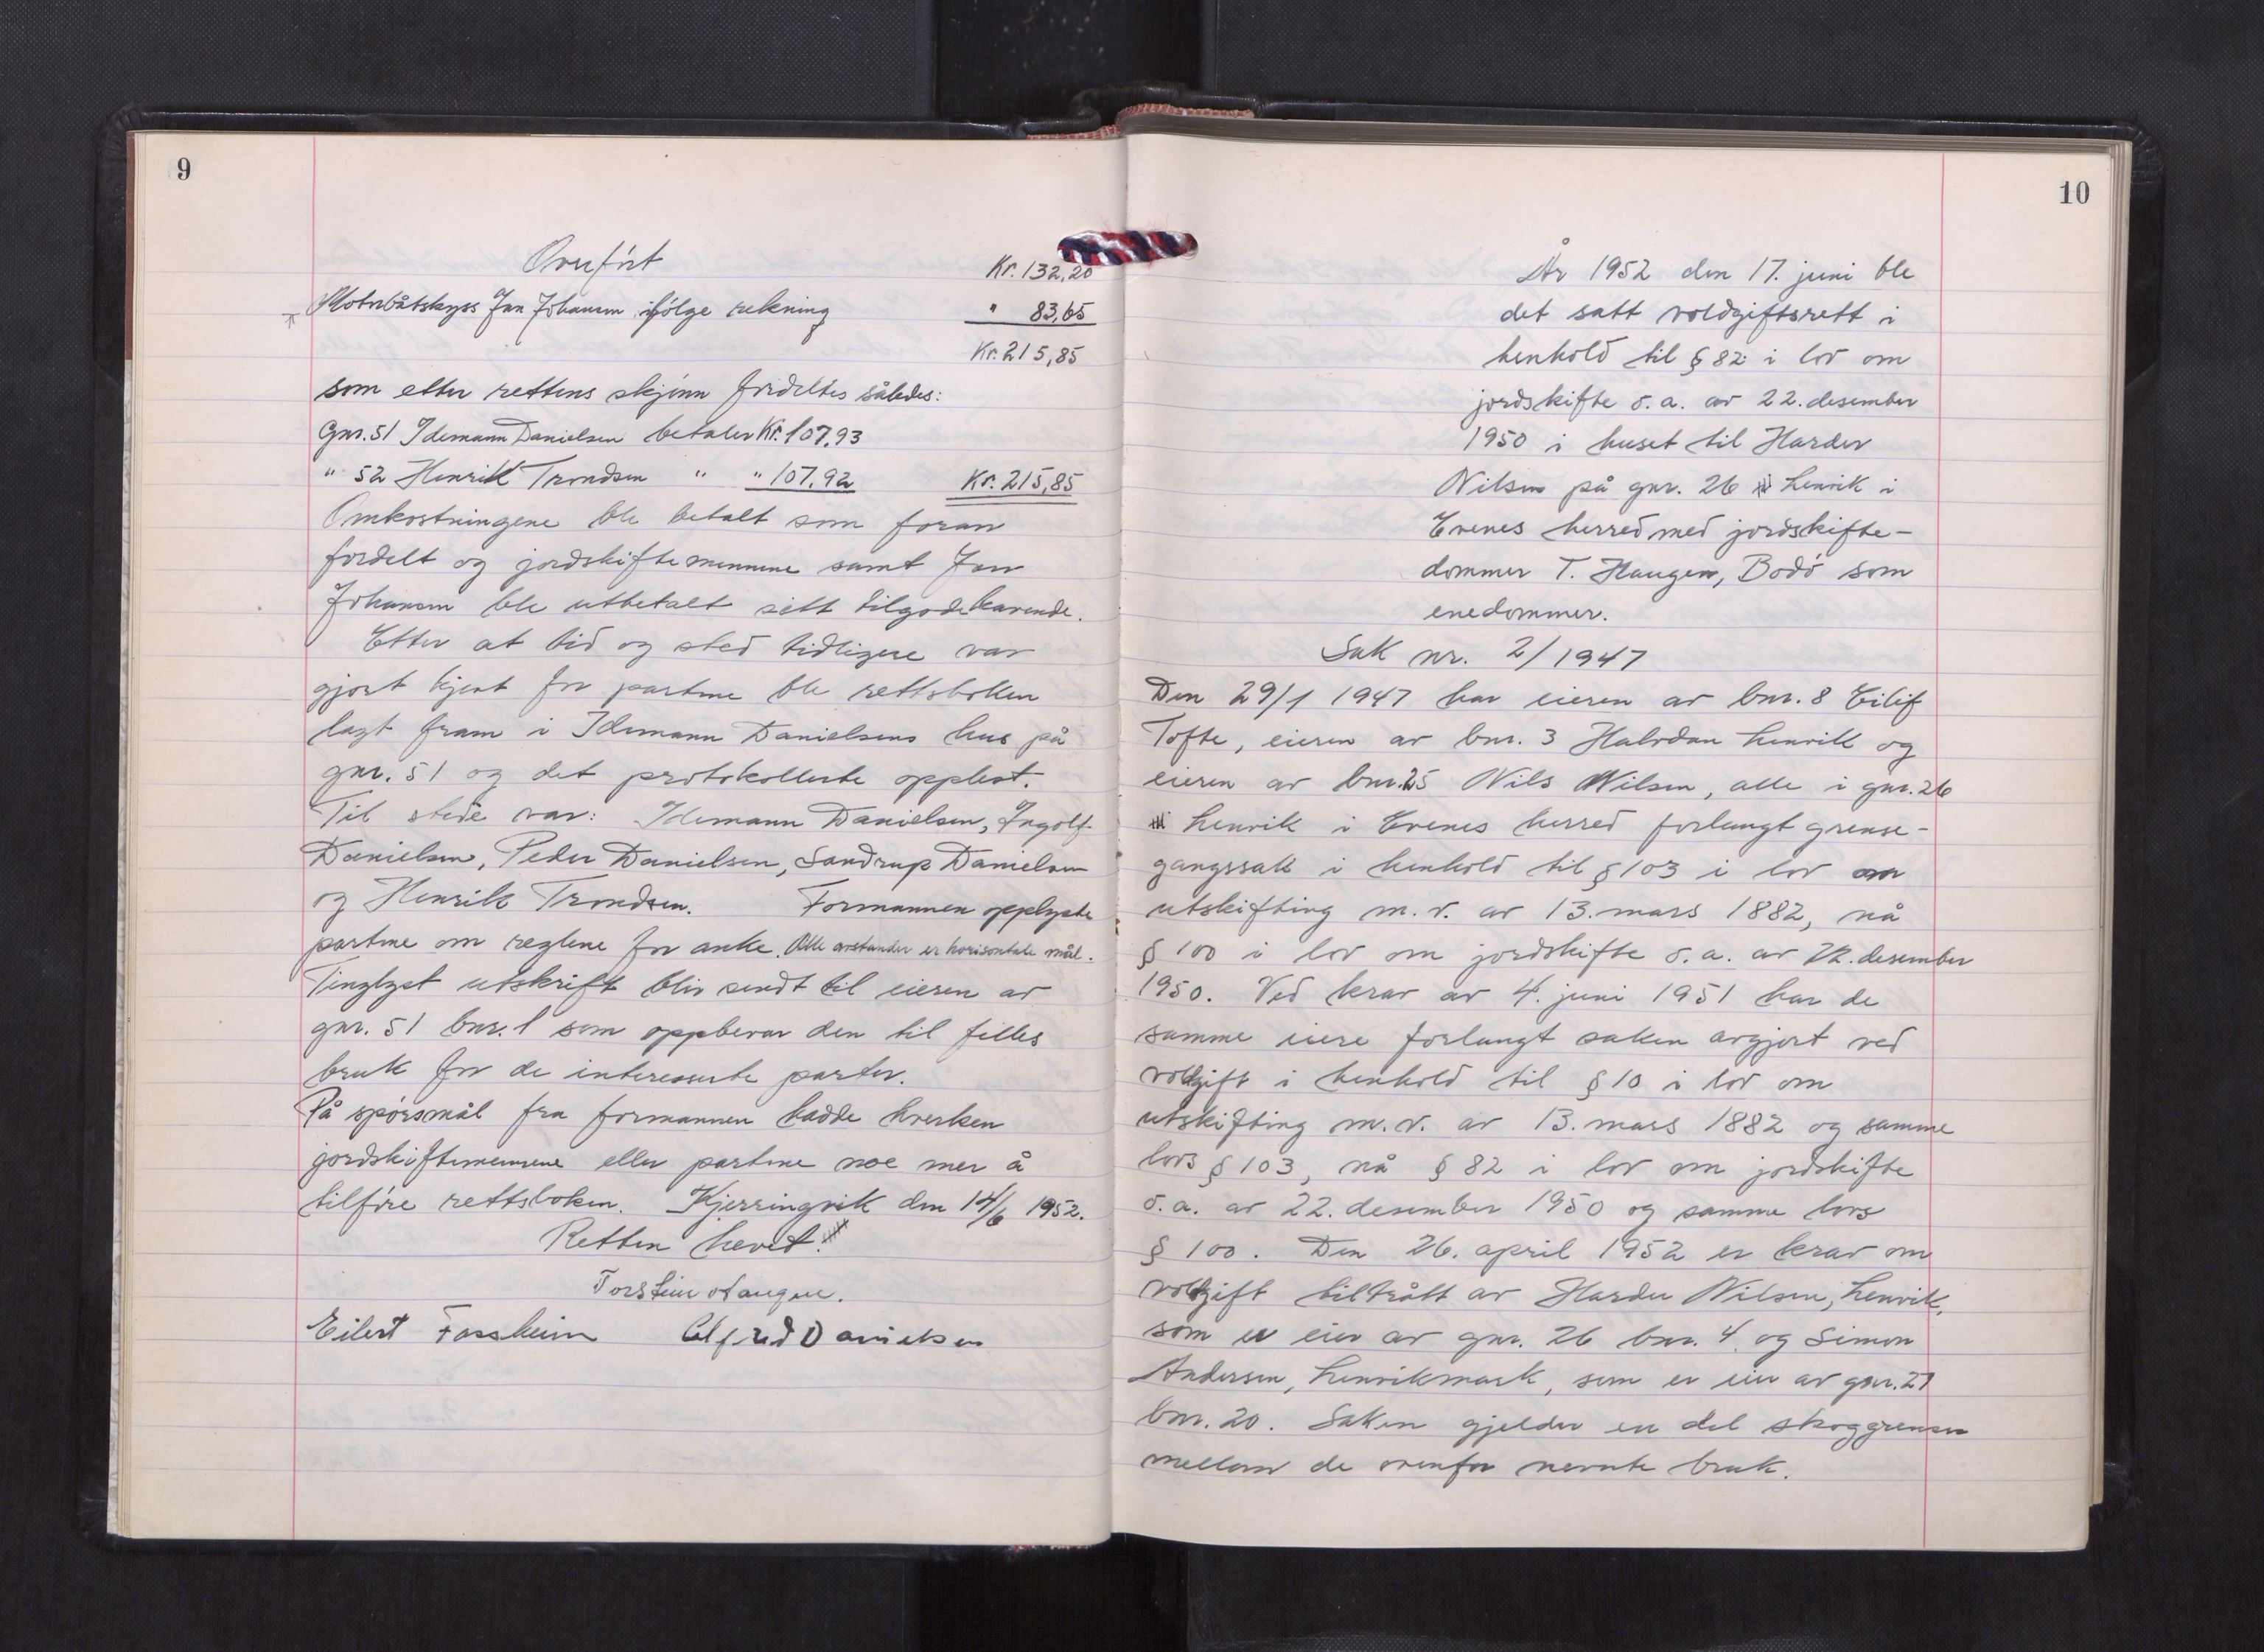 9
Overført Kr. 132,20
Motorbåtskyss Jan Johansen ifølge rekning " 83,65
Kr. 215,85
som etter rettens skjønn fordeltes således:
Gnr. 51 Idemann Danielsen betaler Kr. 107,93
" 52 Henrik Trondsen " " 107,92 Kr. 215,85
Omkostningene ble betalt som foran
fordelt og jordskiftemennene samt Jan
Johansen ble utbetalt sitt tilgodehavende.
Etter at tid og sted tidligere var
gjort kjent for partene ble rettsboken
lagt fram i Idemann Danielsens hus på
gnr. 51 og det protokollerte opplest.
Til stede var: Idemann Danielsen, Ingolf
Danielsen, Peder Danielsen, Sandrup Danielsen
og Henrik Trondsen. Formannen opplyste
partene om reglene for anke. Alle avstander er horisontale mål.
Tinglyst utskrift blir sendt til eieren av
gnr. 51 bnr. 1 som oppbevar den til felles
bruk for de interesserte parter.
På spørsmål fra formannen hadde hverken
jordskiftemennene eller partene noe mer å
tilføre rettsboken. Kjerringvik den 14/6 1952.
Retten hevet.
Torstein Haugen.
Eilert Fossheim Alfred Danielsen
10
År 1952 den 17. juni ble
det satt voldgiftsrett i
henhold til § 82 i lov om
jordskifte o.a. av 22. desember
1950 i huset til Harder
Nilsen på gnr. 26 Lenvik i
Evenes herred med jordskifte-
dommer T. Haugen, Bodø som
enedommer.
Sak nr. 2/1947
Den 29/1 1947 har eieren av bnr. 8 Eilif
Tofte, eieren av bnr. 3 Halvdan Lenvik og
eieren av bnr. 25 Nils Nilsen, alle i gnr. 26
Lenvik i Evenes herred forlangt grense-
gangssak i henhold til § 103 i lov om
utskifting m.v. av 13. mars 1882, nå
§ 100 i lov om jordskifte o.a. av 22. desember
1950. Ved krav av 4. juni 1951 har de
samme eiere forlangt saken avgjort ved
voldgift i henhold til § 10 i lov om
utskifting m.v. av 13. mars 1882 og samme
lovs § 103, nå § 82 i lov om jordskifte
o.a. av 22. desember 1950 og samme lovs
§ 100. Den 26. april 1952 er krav om
voldgift tiltrått av Harder Nilsen, Lenvik,
som er eier av gnr. 26 bnr. 4 og Simon
Andersen, Lenvikmark, som er eier av gnr. 27
bnr. 20. Saken gjelder en del skoggrenser
mellom de ovenfor nevnte bruk.